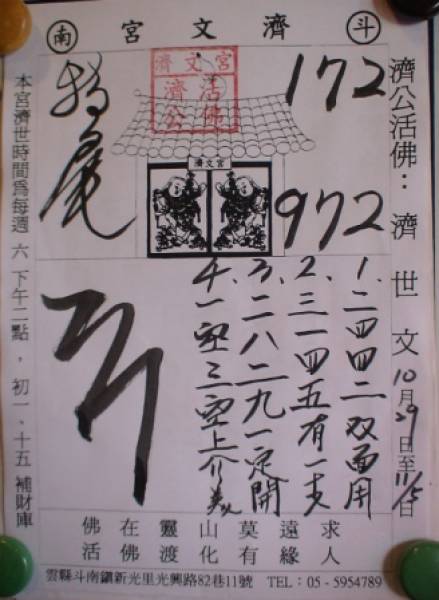 斗 濟文宮 南
濟公活佛：濟世文 10月29日至11/5日
濟文宮
活佛
濟公
172
特尾
宮文濟
972
1.二四四二双面用
2.三一四五有一支
3.二八二九一定開
4.一空三空上介
本宮濟世時間為每週六下午二點，初一、十五補財庫
佛在靈山莫遠求
活佛渡化有緣人
雲縣斗南鎮新光里光興路82巷11號 TEL：05-5954789